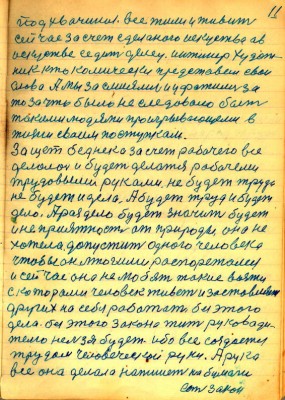 11
подхвачиил. все жили и живит
сейчас за счет сделаного искуства а в
искустве седит делец. интимер худож
ник кто комически представел свои
слова А мы засмеялис и ухватилис за
то за что было не следовало быт
такими людями проигрывающеми в
жизни своем поступкам.
За щет беднека за счет рабочего все
делолоз и будет делатя рабочеми
трудовыми руками. не будет труда
не будет и дела. А будет труд и будет
дело. А раз дело будет значит будет
и не приятност от природы, она не
хотела допустит одного человека
чтобы он многими распорежался
и сейчас она не любит такие
с которами человек живет и заставляет
других на себя работат бы этого
дела. бы этого закона тит руковади
телю нелзя будет ибо все создается
трудом человеческай руки. А рука
все она делала напишет на бумаги